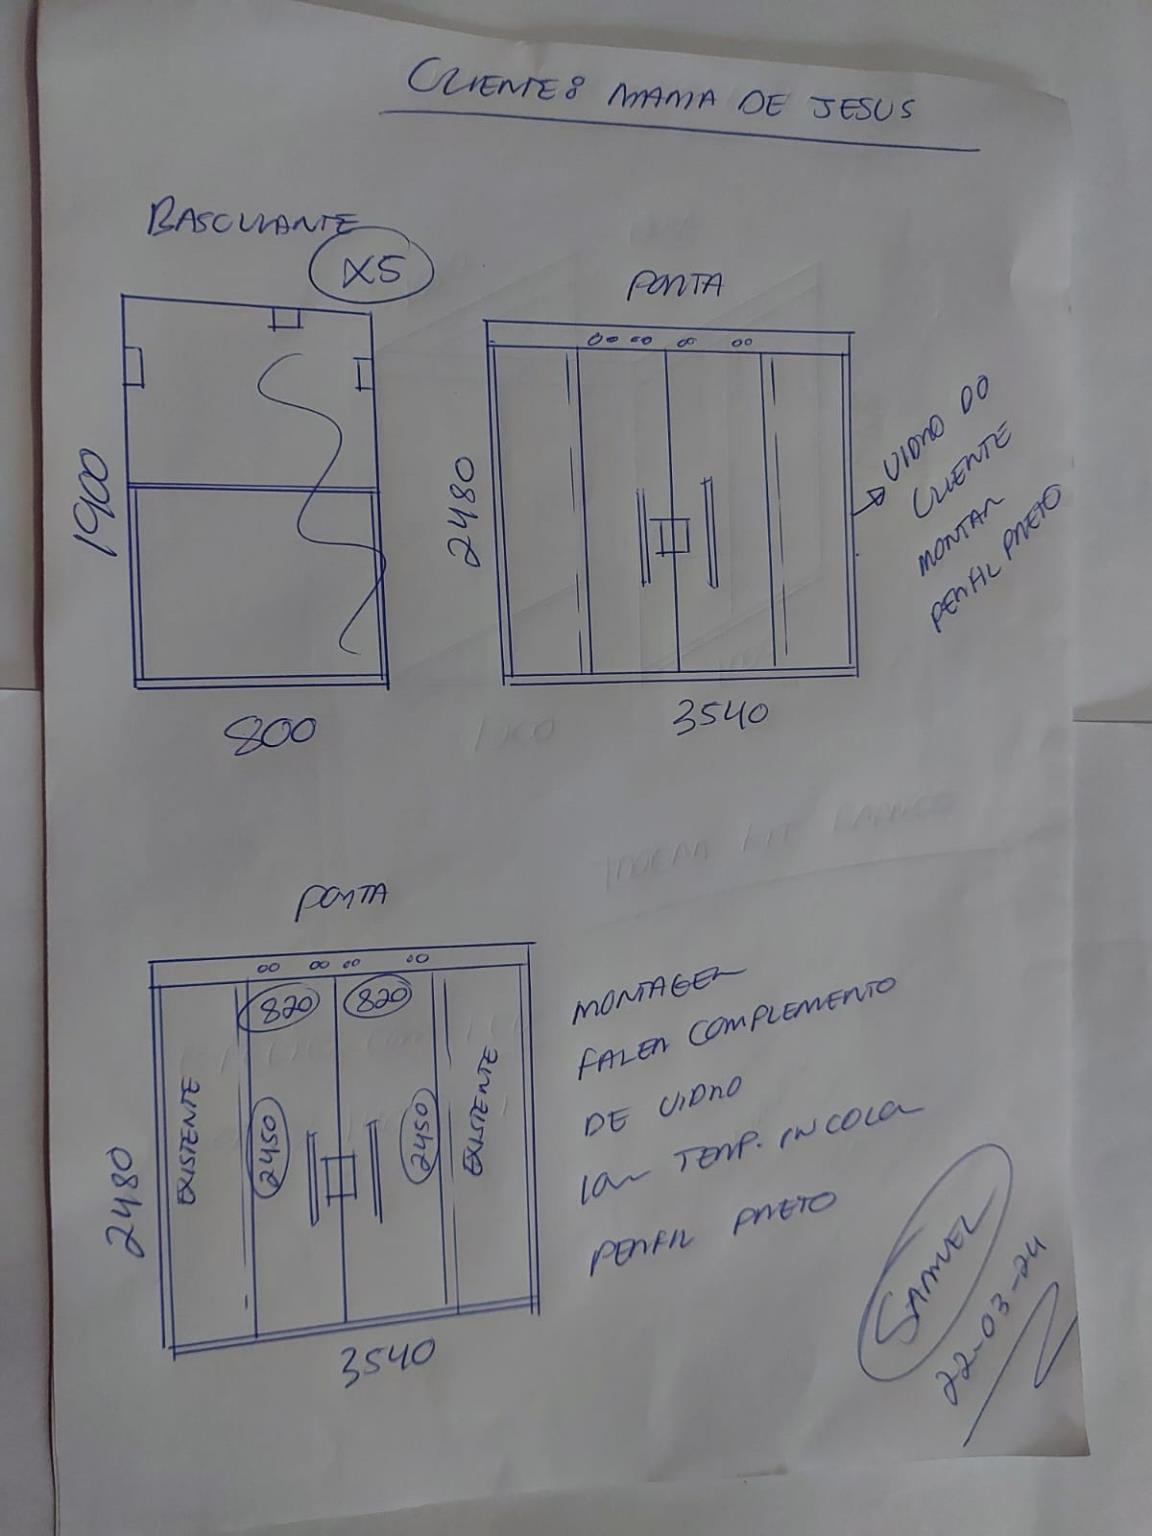 CLIENTE: MARIA DE JESUS
BASCULANTE
X5
1900
800
PORTA
2480
3540
VIDRO DO
CLIENTE
MONTAR
PERFIL PRETO
PORTA
820
820
EXISTENTE
2450
2450
EXISTENTE
2480
3540
MONTAGEM
FALTA COMPLEMENTO
DE VIDRO
TEMP. INCOLOR
PERFIL PRETO
SAMUEL
22-03-24